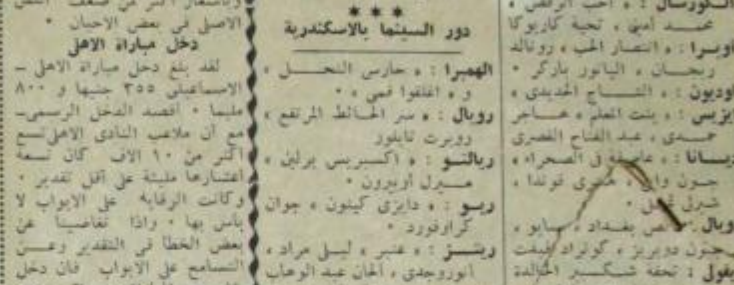 الكورسال : « أحب الرقص »
محمد أمين ، تحية كاريوكا
أوبرا : « انتصار الحب » رونالد
ريجان ، اليانور باركر .
أوديون : « التاج الحديدى »
ايزيس : « بنت المعلم » هاجر
حمدى ، عبد الفتاح القصرى
ديانا : « عاصفة فى الصحراء »
جون واين ، هنرى فوندا ،
شرلى تمبل .
لص بغداد ، سابو ،
جون دوبريز ، كونراد فيفت
تحفة شكسبير الخالدة
***
دور السينما بالاسكندرية
الهمبرا : « حارس النحل »
و « اغلقوا فمى » .
رويال : « سر الحائط المرتفع »
روبرت تايلور
ريالتو : « اكسبريس برلين »
ميرل أوبرون .
ريو : « دايزى كينون » جوان
كراوفورد .
ريتز : « عنبر » ليلى مراد ،
أنور وجدى ، ألحان عبد الوهاب
الاصلى فى بعض الاحيان .
دخل مباراة الاهلى
لقد بلغ دخل مباراة الاهلى ــ
الاسماعيلى ٣٥٥ جنيها و ٨٠٠
مليما . أقصد الدخل الرسمى ــ
مع أن ملاعب النادى الاهلى تسع
أكثر من ١٠ الاف كان تسعة
أعشارها مليئة على أقل تقدير .
وكانت الرقابة على الابواب لا
بأس بها . واذا تغاضينا عن
بعض الخطأ فى التقدير وعن
التسامح على الابواب فان دخل